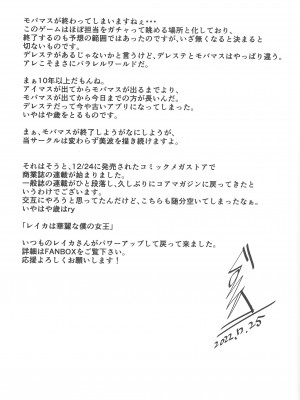 モバマスが終わってしまいますねぇ・・・
このゲームはほぼ担当をガチャって眺める場所と化しており、
終了するのも予想の範囲ではあったのですが、いざ無くなると決まると
切ないものです。
デレステがあるじゃないかと言うけど、デレステとモバマスはやっぱり違う。
アレこそまさにパラレルワールドだ。
まぁ10年以上だもんね。
アイマスが出てからモバマスが出るまでより、
モバマスが出てから今日までの方が長いんだ。
デレステだって今や古いアプリになってしまった。
いやはや歳をとるものです。
まぁ、モバマスが終了しようがなにしようが、
当サークルは変わらず美波を描き続けますよ。
それはそうと、12/24に発売されたコミックメガストアで
商業誌の連載が始まりました。
一般誌の連載がひと段落し、久しぶりにコアマガジンに戻ってきたと
いうわけでございます。
交互にやろうと思ってたんだけど、こちらも随分空いてしまったなぁ。
いやはや歳はry
「レイカは華麗な僕の女王」
いつものレイカさんがパワーアップして戻って来ました。
詳細はFANBOXをご覧下さい。
応援よろしくお願いします！
2022.12.25